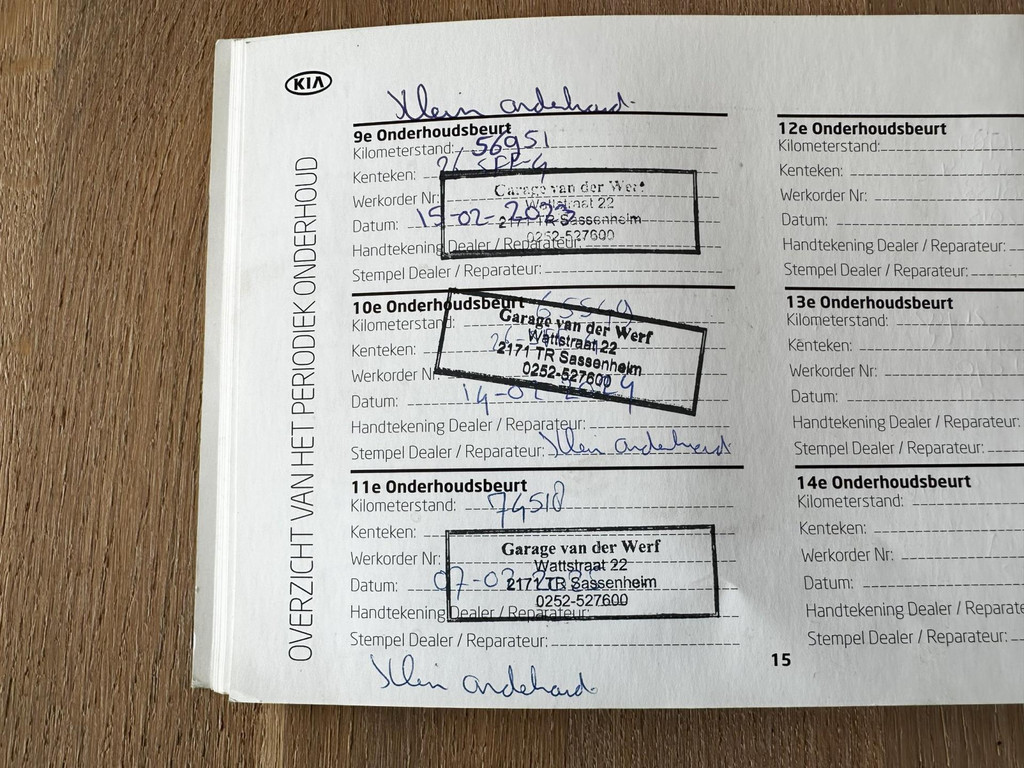 KIA
OVERZICHT VAN HET PERIODIEK ONDERHOUD
Klein onderhoud
9e Onderhoudsbeurt
Kilometerstand: 56951
Kenteken: 26
Werkorder Nr:
Datum: 15-02-2023
Handtekening Dealer / Reparateur:
Stempel Dealer / Reparateur:
Garage van der Werf
Wattstraat 22
2171 TR Sassenheim
0252-527600
10e Onderhoudsbeurt
Kilometerstand:
Kenteken: 26
Werkorder Nr:
Datum: 14-02-2024
Handtekening Dealer / Reparateur:
Stempel Dealer / Reparateur: Klein onderhoud
Garage van der Werf
Wattstraat 22
2171 TR Sassenheim
0252-527600
11e Onderhoudsbeurt
Kilometerstand: 74510
Kenteken:
Werkorder Nr:
Datum: 07-02-
Handtekening Dealer / Reparateur:
Stempel Dealer / Reparateur:
Garage van der Werf
Wattstraat 22
2171 TR Sassenheim
0252-527600
Klein onderhoud
12e Onderhoudsbeurt
Kilometerstand:
Kenteken:
Werkorder Nr:
Datum:
Handtekening Dealer / Reparateur:
Stempel Dealer / Reparateur:
13e Onderhoudsbeurt
Kilometerstand:
Kenteken:
Werkorder Nr:
Datum:
Handtekening Dealer / Reparateur:
Stempel Dealer / Reparateur:
14e Onderhoudsbeurt
Kilometerstand:
Kenteken:
Werkorder Nr:
Datum:
Handtekening Dealer / Reparate
Stempel Dealer / Reparateur:
15